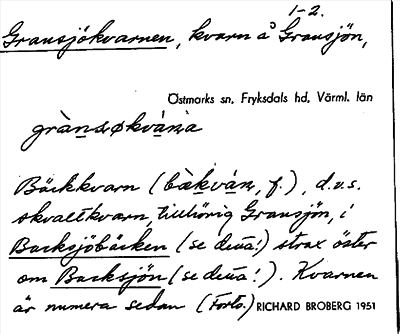 1-2.
Gransjökvarnen, kvarn å Gransjön,
Östmarks sn, Fryksdals hd, Värml. län
grànsøkvàṇa
Bäckkvarn (bàkvàṇ, f.), d.v.s.
skvaltkvarn, tillhörig Gransjön, i
Backsjöbäcken (se detta!) strax öster
om Backsjön (se detta!). Kvarnen
är numera sedan (Forts.) RICHARD BROBERG 1951